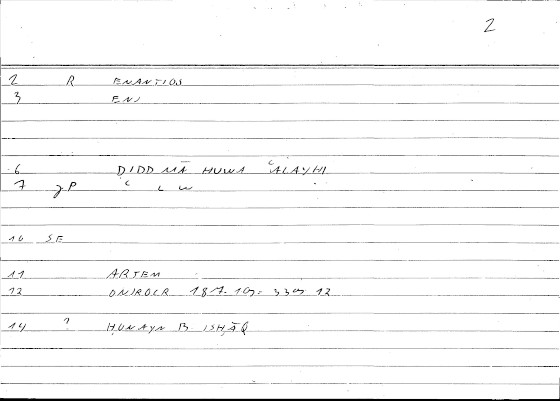 2
2 R ENANTIOS
3 ENI
6 DIDD MĀ HUWA ʿALAYHI
7 gP ʿ L W
10 SE
11 ARTEM
12 ONIROCR 187.10 = 330 12
14 ? ḤUNAYN B ISḤĀQ